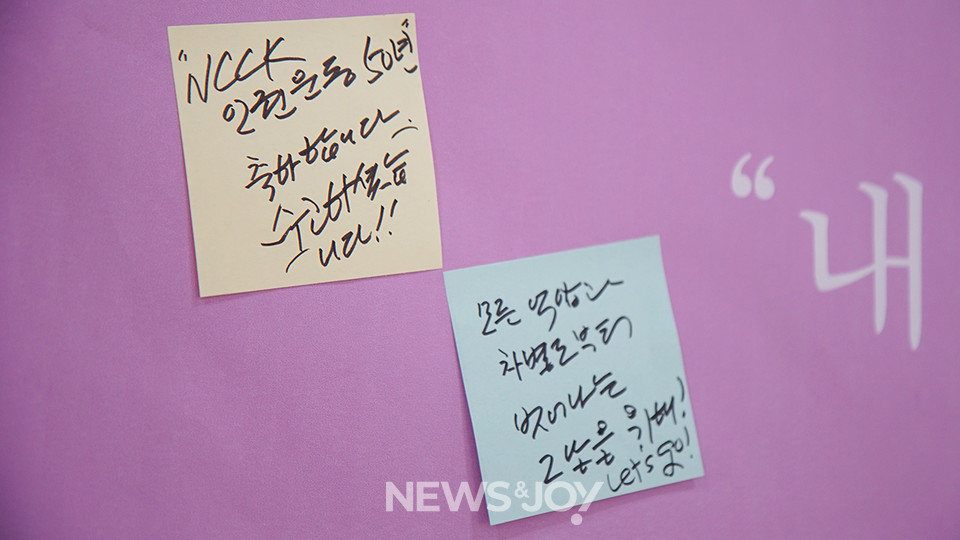 "NCCK
인권운동 50년"
축하합니다.
수고하셨습
니다!!
"내
모든 억압과
차별로부터
벗어나는
그날을 위해!
Let's go!
NEWS&JOY